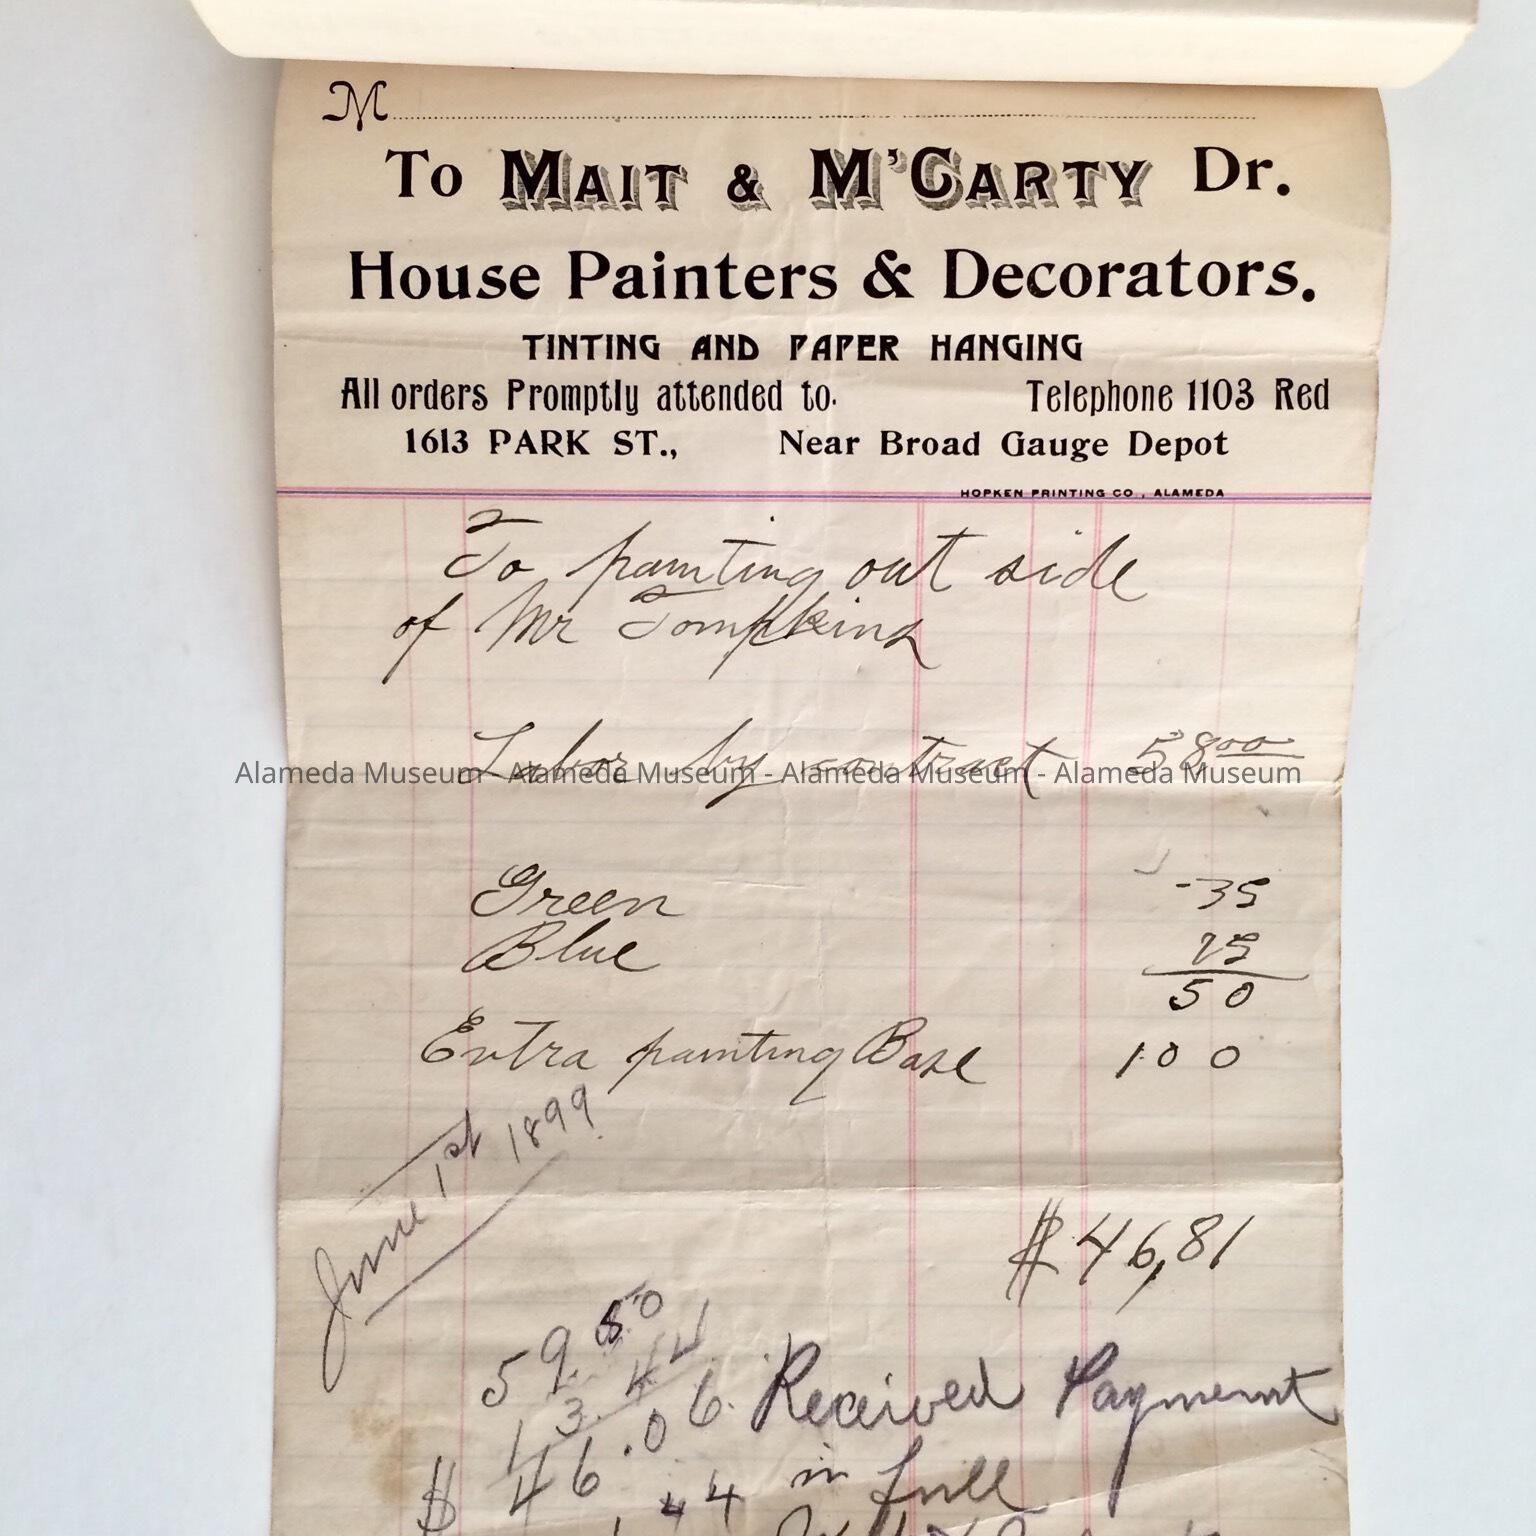 M
To MAIT & M'CARTY Dr.
House Painters & Decorators.
TINTING AND PAPER HANGING
All orders Promptly attended to. Telephone 1103 Red
1613 PARK ST., Near Broad Gauge Depot
HOPKEN PRINTING CO., ALAMEDA
To painting out side
of Mr Tompkins
Labor by contract 58.00
Alameda Museum - Alameda Museum - Alameda Museum - Alameda Museum
Green -35
Blue
50
Extra painting Base 1.00
June 1st 1899
$46,81
59.50
13.44
$ 46.06
Received Payment
in full